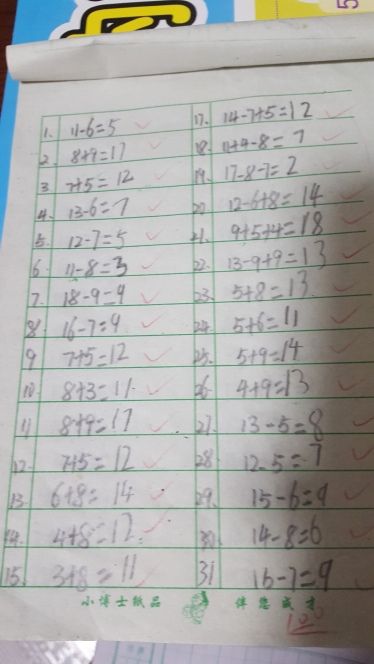 1. 11-6=5
2. 8+9=17
3 7+5=12
4. 13-6=7
5. 12-7=5
6 11-8=3
7. 18-9=9
8. 16-7=9
9 7+5=12
10 8+3=11
11 8+9=17
12. 7+5=12
13. 6+8=14
14. 4+8=12
15. 3+8=11
17. 14-7+5=12
18. 11+4-8=7
19. 17-8-7=2
20 12-6+8=14
21. 9+5+4=18
22. 13-9+9=13
23. 5+8=13
24. 5+6=11
25. 5+9=14
26 4+9=13
27. 13-5=8
28. 12-5=7
29. 15-6=9
30. 14-8=6
31 16-7=9
小博士纸品 伴您成才
100
5